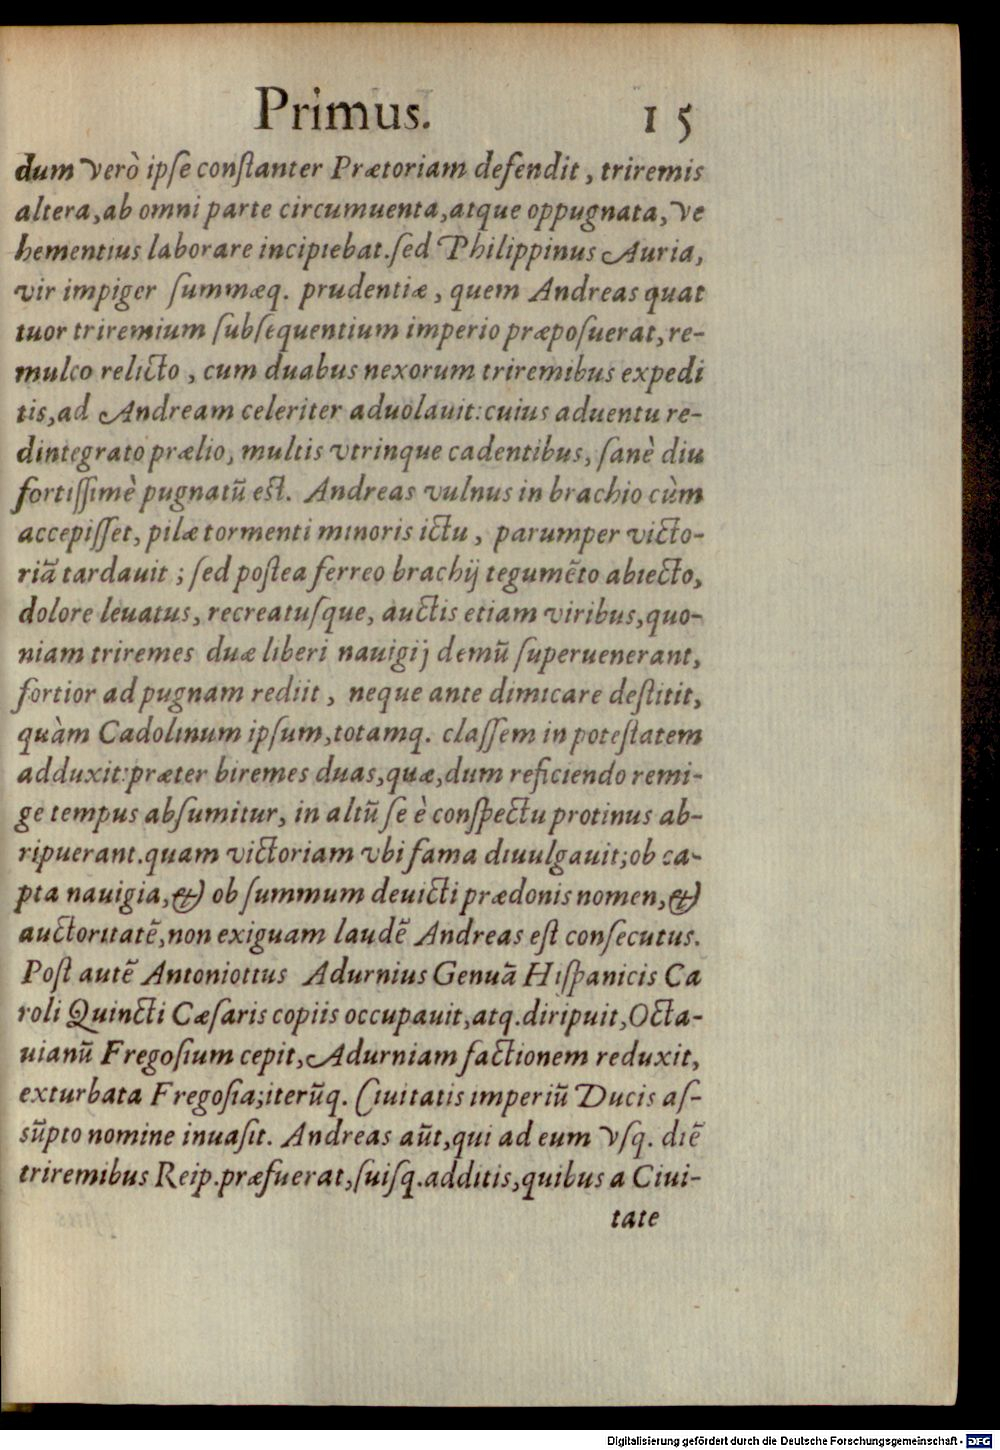 Primus. 15
dum verò ipſe conſtanter Prætoriam defendit, triremis
altera, ab omni parte circumuenta, atque oppugnata, ve
hementius laborare incipiebat. ſed Philippinus Auria,
vir impiger ſummæq. prudentiæ, quem Andreas quat
tuor triremium ſubſequentium imperio præpoſuerat, re-
mulco relicto, cum duabus nexorum triremibus expedi
tis, ad Andream celeriter aduolauit: cuius aduentu re-
dintegrato prælio, multis vtrinque cadentibus, ſanè diu
fortiſſimè pugnatũ eſt. Andreas vulnus in brachio cùm
accepiſſet, pilæ tormenti minoris ictu, parumper victo-
riã tardauit; ſed poſtea ferreo brachij tegumẽto abiecto,
dolore leuatus, recreatuſque, auctis etiam viribus, quo-
niam triremes duæ liberi nauigij demũ ſuperuenerant,
fortior ad pugnam rediit, neque ante dimicare deſtitit,
quàm Cadolinum ipſum, totamq. claſſem in poteſtatem
adduxit: præter biremes duas, quæ, dum reficiendo remi-
ge tempus abſumitur, in altũ ſe è conſpectu protinus ab-
ripuerant. quam victoriam vbi fama diuulgauit; ob ca-
pta nauigia, & ob ſummum deuicti prædonis nomen, &
auctoritatẽ, non exiguam laudẽ Andreas eſt conſecutus.
Poſt autẽ Antoniottus Adurnius Genuã Hiſpanicis Ca
roli Quincti Cæſaris copiis occupauit, atq. diripuit, Octa-
uianũ Fregoſium cepit, Adurniam factionem reduxit,
exturbata Fregoſia; iterũq. Ciuitatis imperiũ Ducis aſ-
sũpto nomine inuaſit. Andreas aũt, qui ad eum vſq. diẽ
triremibus Reip. præfuerat, ſuiſq. additis, quibus a Ciui-
tate
Digitalisierung gefördert durch die Deutsche Forschungsgemeinschaft - DFG